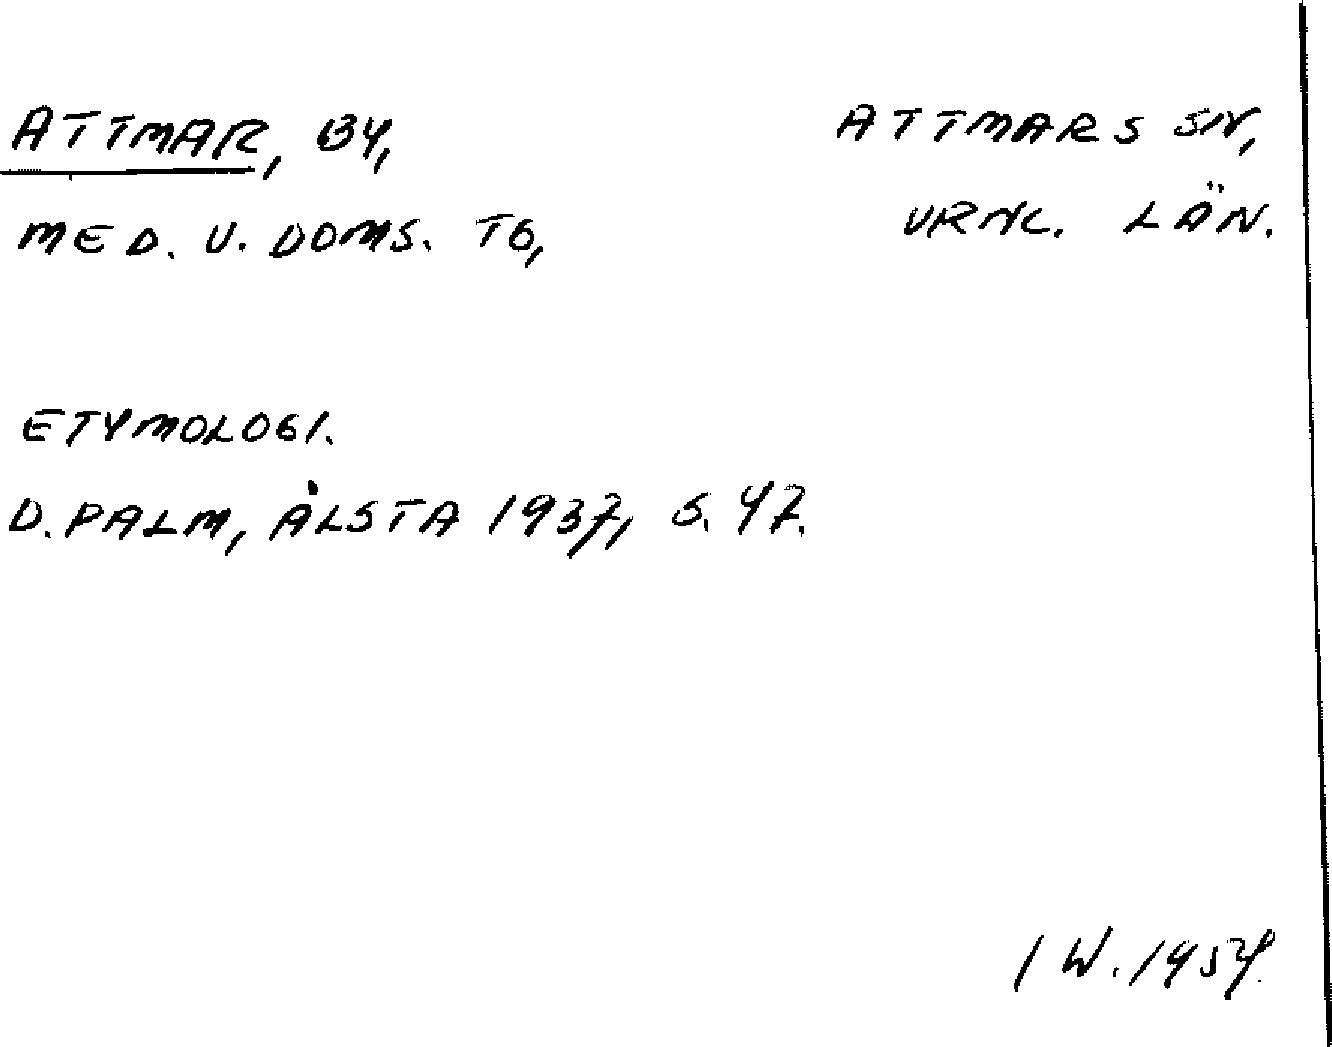 ATTMAR, BY,
ATTMARS SN,
MED. V. DOMS. TG,
VRNL. LÄN.
ETYMOLOGI.
D. PALM, ÅLSTA 1937, S. 47.
I W. 1954.